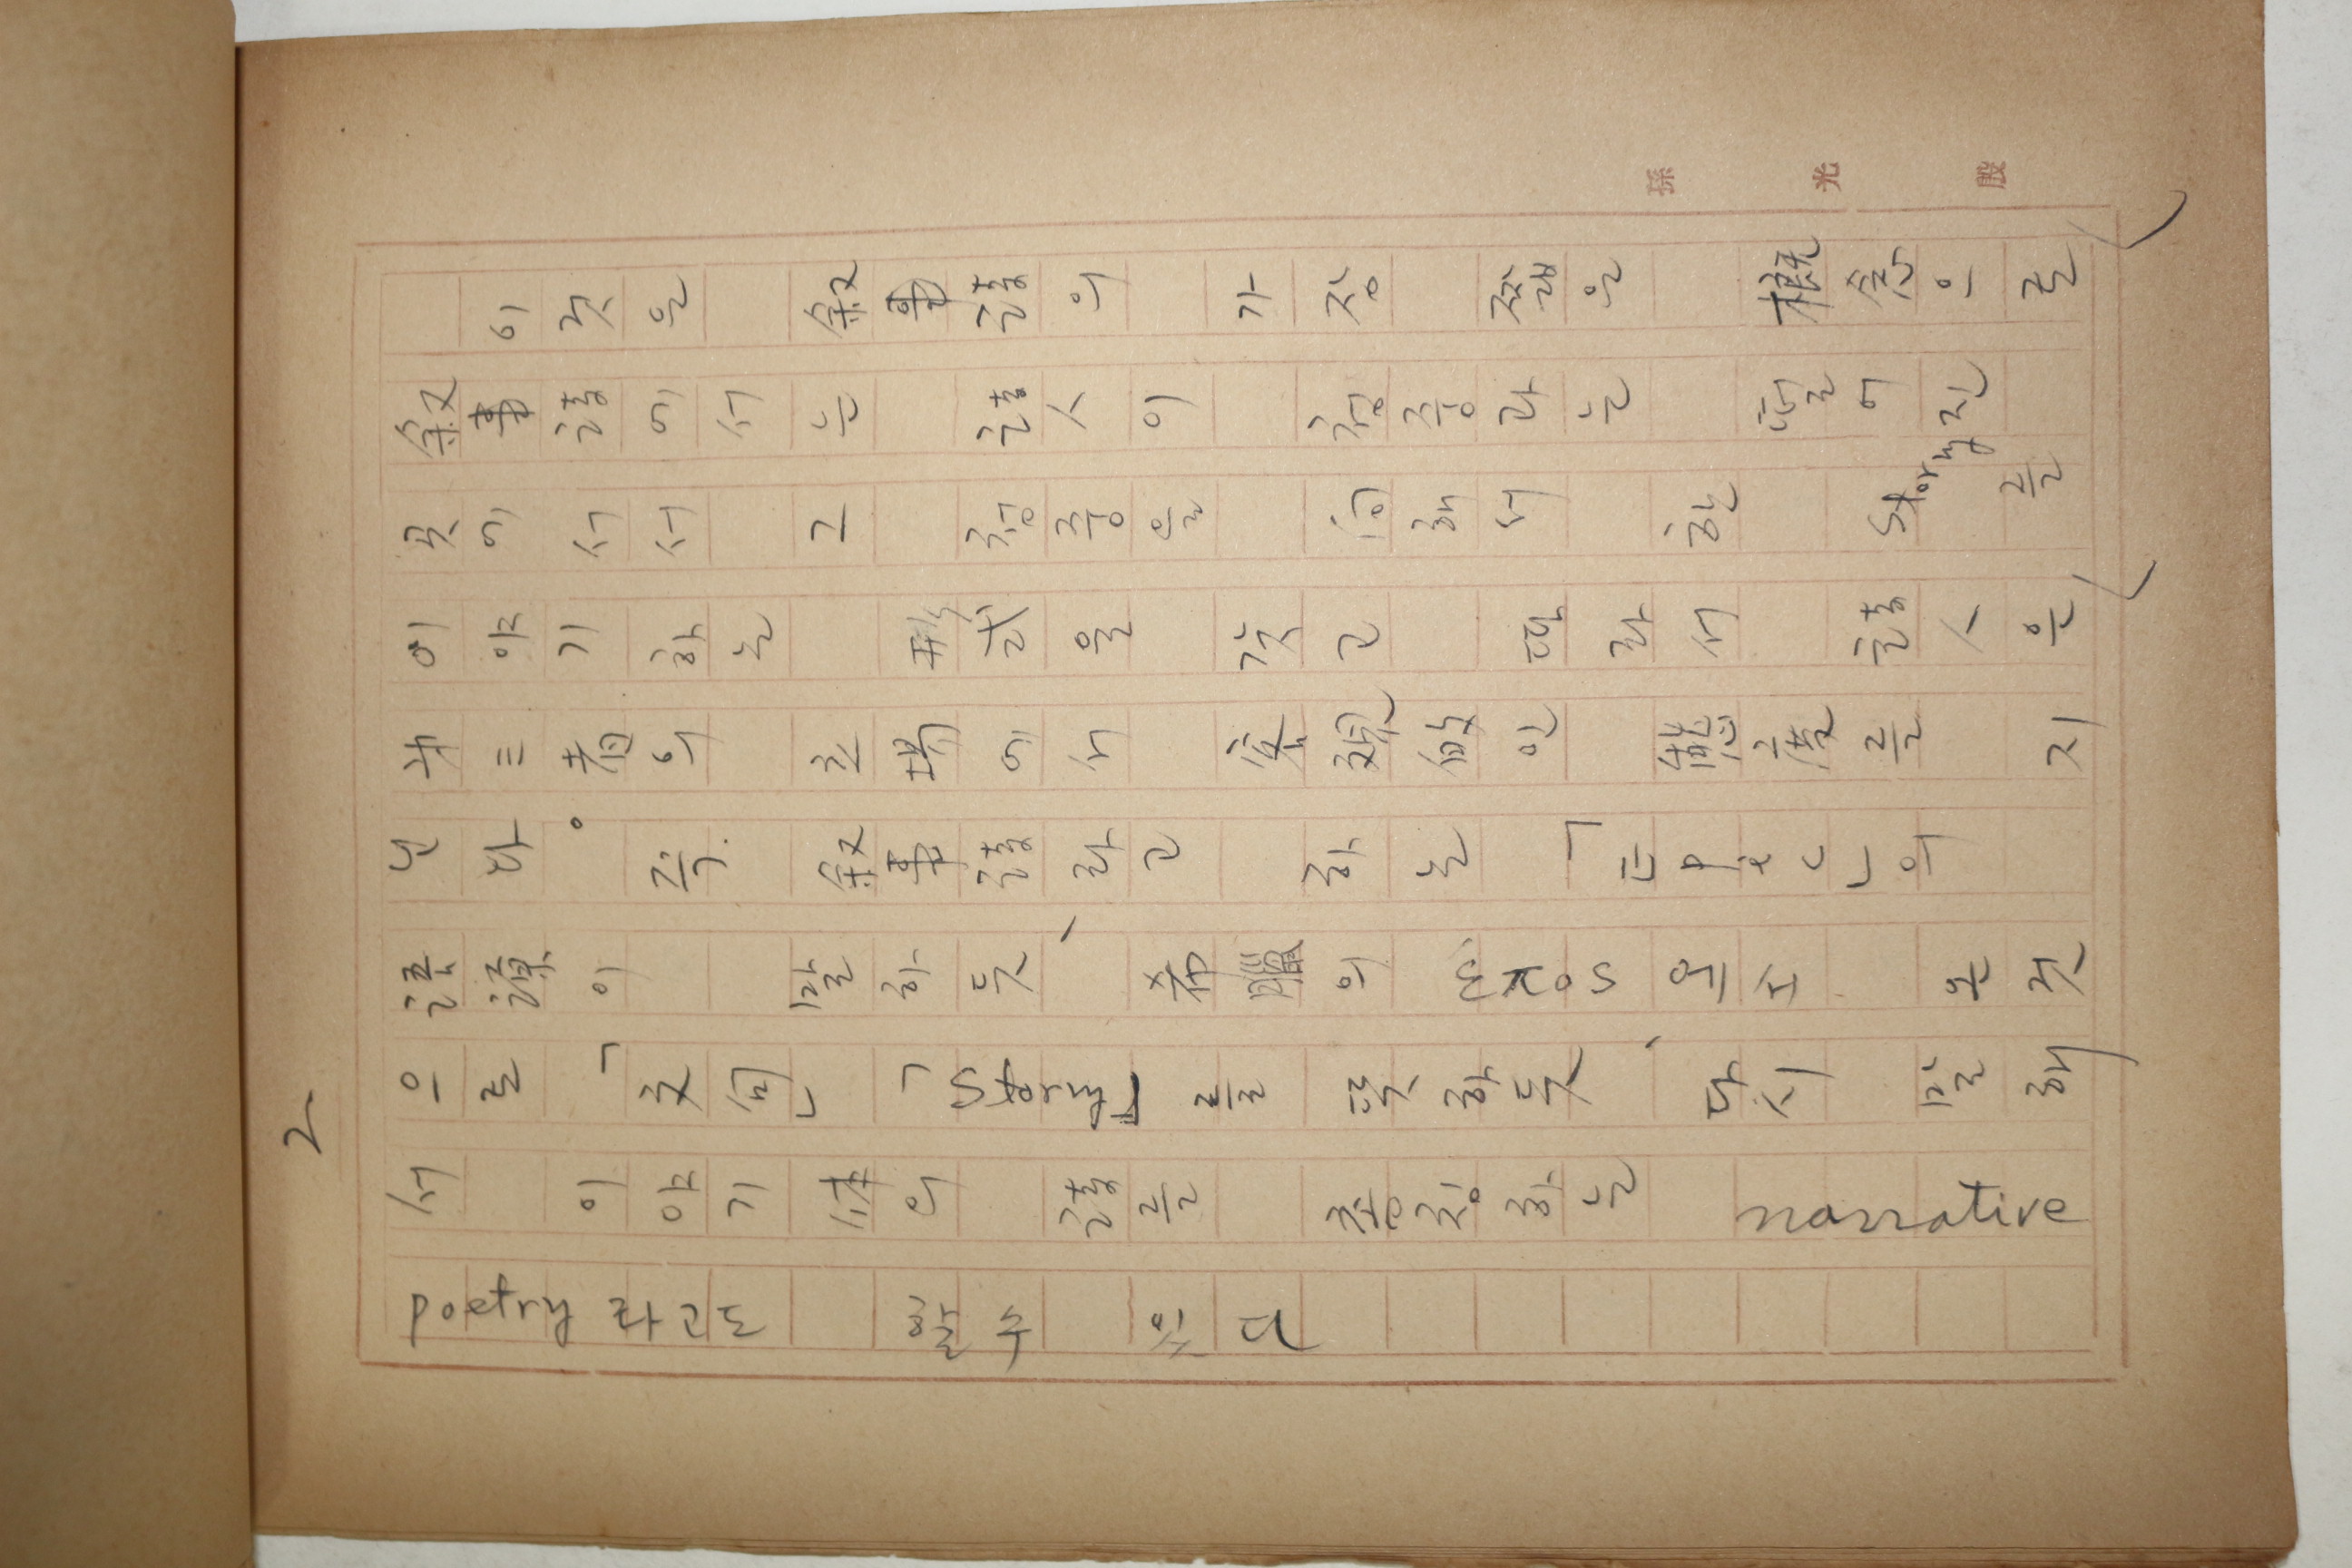 2
이것은 敍事詩의 가장 짧은 槪念으로
敍事詩에서는 詩人이 청중과는 떨어진
곳에 서서 그 청중을 向해서 한 story를
이야기하는 形式을 갖고 따라서 詩人은
第三者의 立場에서 客觀的인 態度를 지
닌다. 즉. 敍事詩라고 하는 「Epic」의
語源이 말하듯、希臘의 έπos에서 온 것
으로 「文句」「Story」를 뜻하듯、다시 말해
서 이야기 体의 詩를 총칭하는 narrative
poetry 라고도 할 수 있다
孫 光 殷